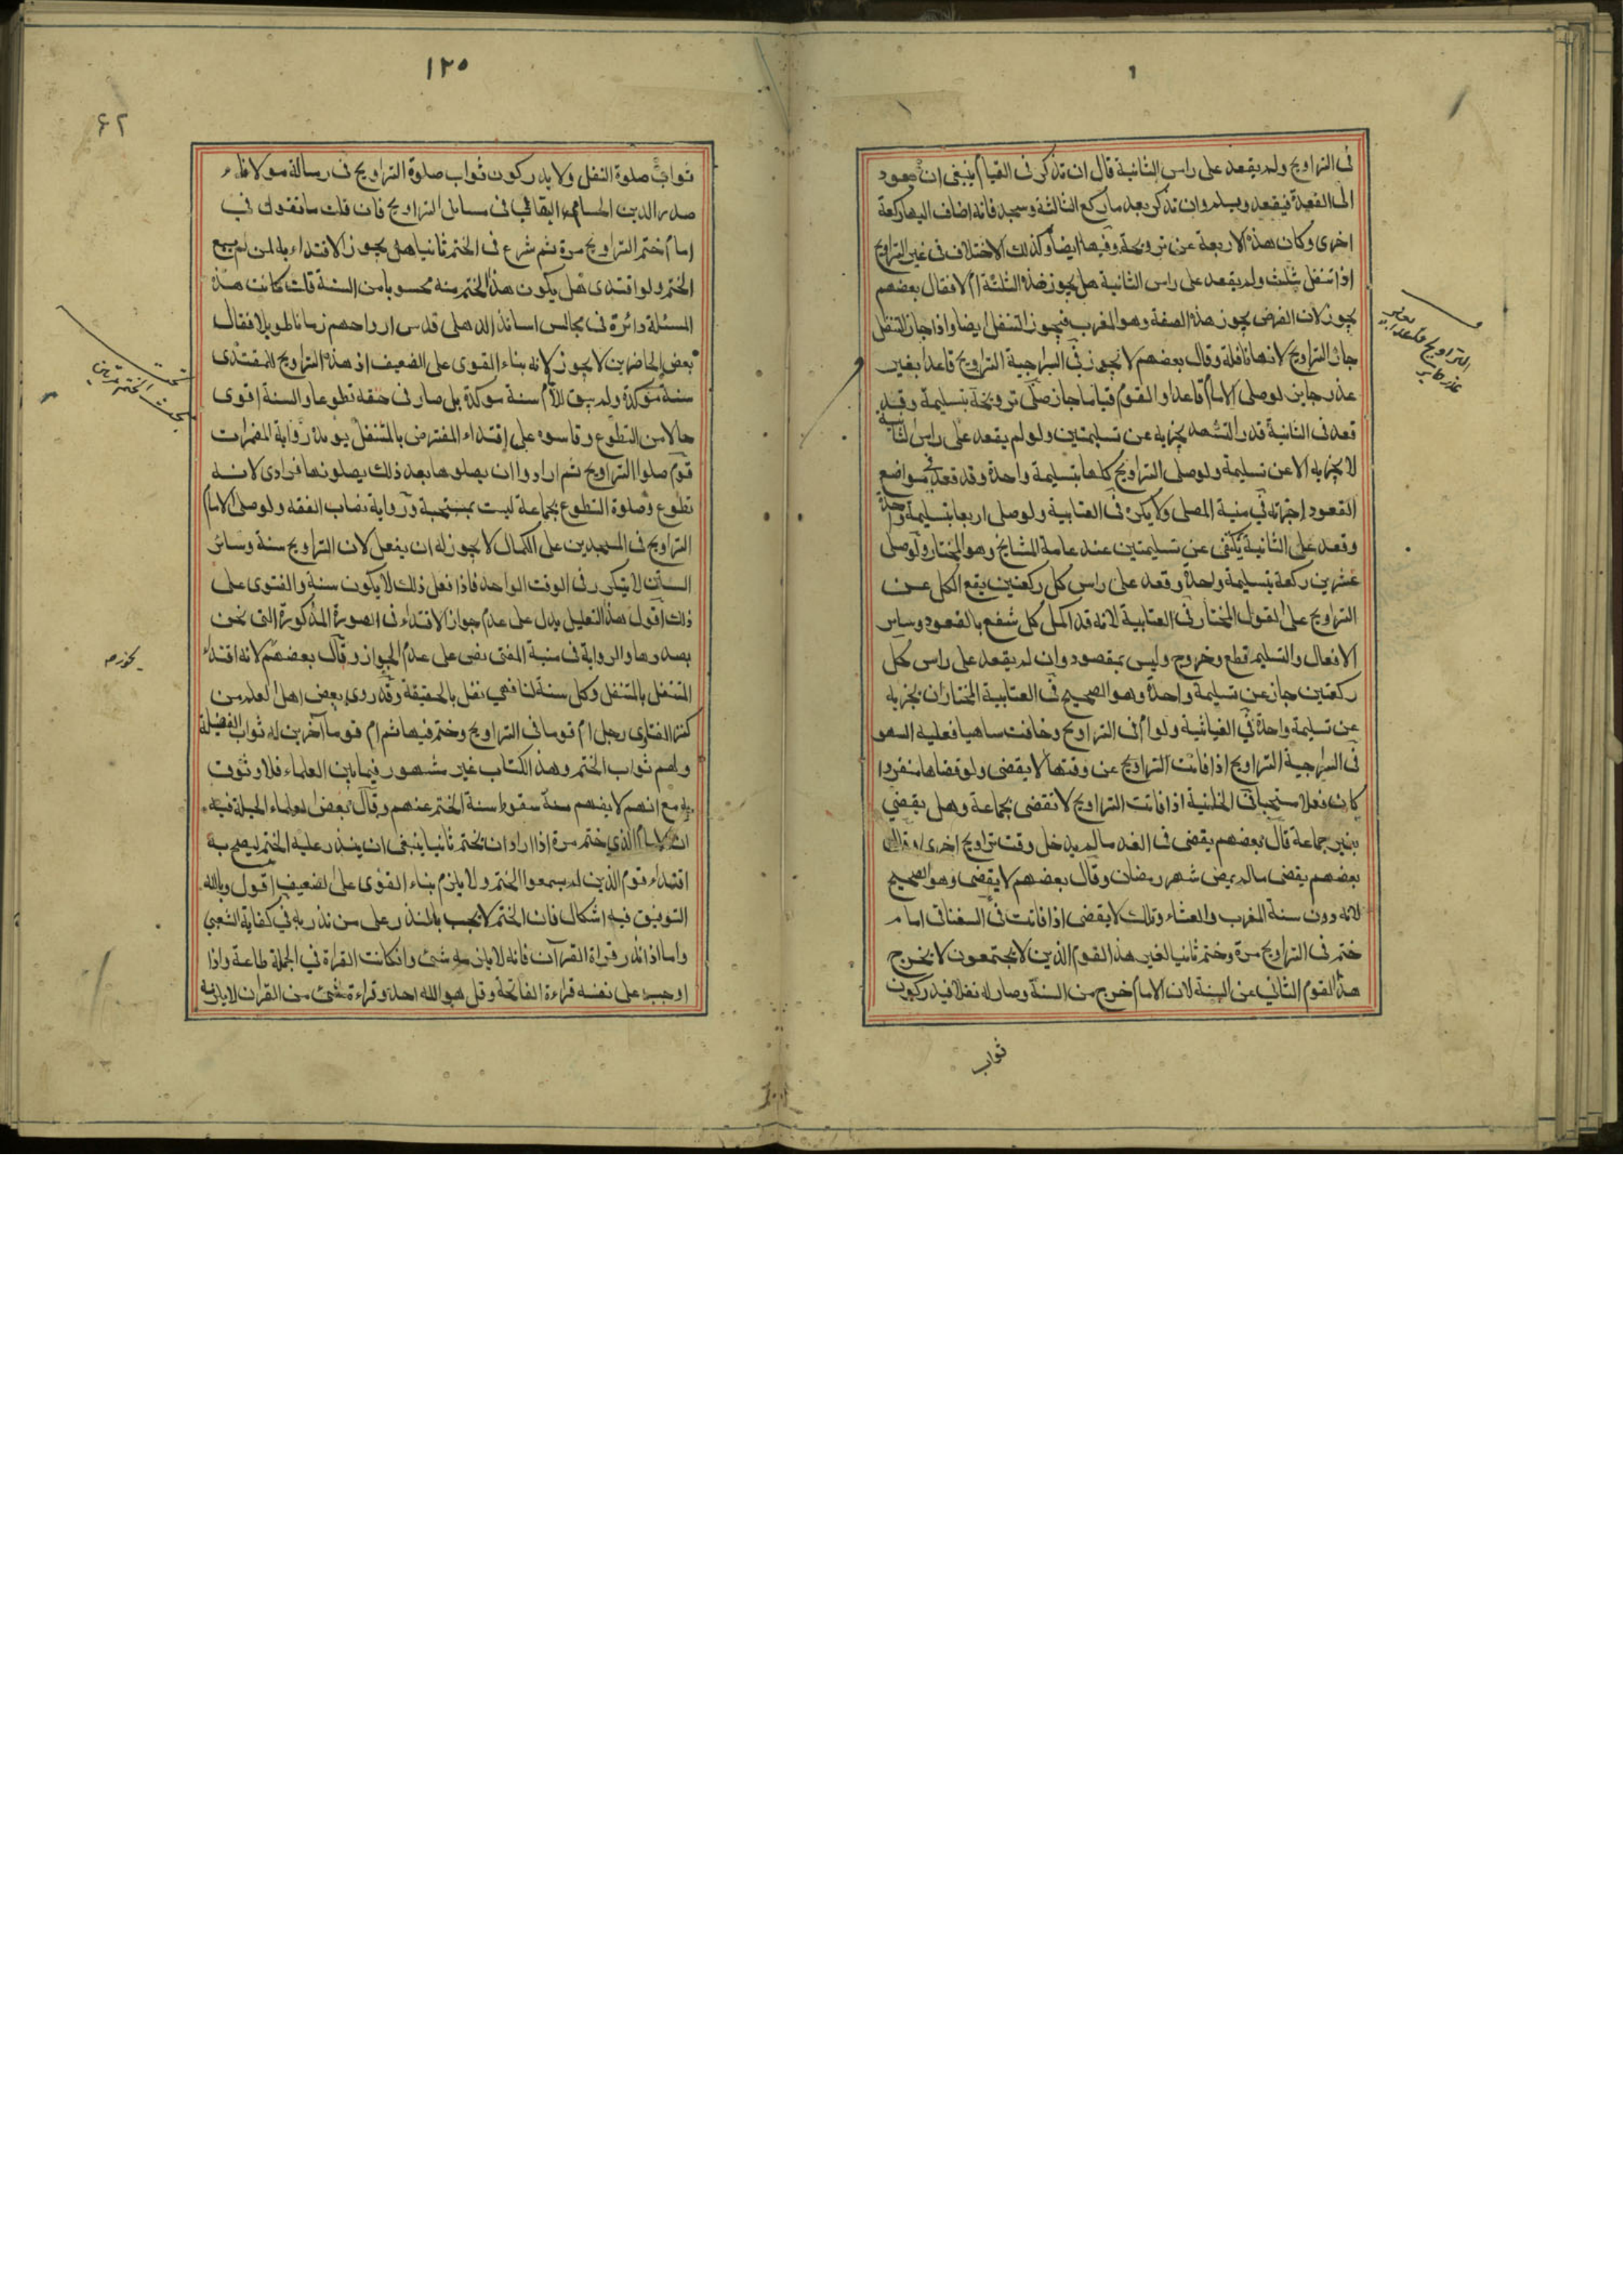 في التراويح ولم يقعد على راس الثانية قال ان تذكر في القيام ينبغي ان يعود
الى القعدة فيقعد ويسلم وان تذكر بعد ما ركع الثالثة وسجد فانه اضاف اليها ركعة
اخرى وكان هذه الاربعة عن ترويحة وفيها ايضا وكذلك الاختلاف في غير التراويح
اذا تنفل بثلث ولم يقعد على راس الثانية هل يجوز هذه الثلثة ام لا فقال بعضهم
يجوز لان الفرض يجوز هذه الصفة وهو المغرب فيجوز التنفل ايضا واذا جاز التنفل
جاز التراويح لانها نافلة وقال بعضهم لا يجوز في السراجية التراويح قاعدا بغير
عذر جايز لو صلى الامام قاعدا والقوم قياما جاز صلى ترويحة بتسليمة وقد
قعد في الثانية قدر التشهد يجزيه عن تسليمتين ولو لم يقعد على راس الثانية
لا يجزيه الا عن تسليمة ولو صلى التراويح كلها بتسليمة واحدة وقد قعد في مواضع
القعود اجزاته في منية المصلى ولا يكره في العتابية ولو صلى اربعا بتسليمة واحدة
وقعد على الثانية يكفى عن تسليمتين عند عامة المشايخ وهو المختار ولو صلى
عشرين ركعة بتسليمة واحدة وقعد على راس كل ركعتين يقع الكل عن
التراويح على القول المختار في العتابية لانه قد اكمل كل شفع بالقعود وساير
الافعال والتسليم قطع وخروج وليس بمقصود وان لم يقعد على راس كل
ركعتين جاز عن تسليمة واحدة وهو الصحيح في العتابية المختار ان يجزيه
عن تسليمة واحدة في الغياثية ولو ام في التراويح وخافت ساهيا فعليه السهو
في السراجية التراويح اذا فاتت التراويح عن وقتها لا يقضى ولو قضاها منفردا
كان نفلا مستحبا في الخانية اذا فاتت التراويح لا تقضى بجماعة وهل يقضي
بغير جماعة قال بعضهم يقضى في الغد ما لم يدخل وقت تراويح اخرى وقال
بعضهم يقضى ما لم يمض شهر رمضان وقال بعضهم لا يقضى وهو الصحيح
لانه دون سنة المغرب والعشاء وتلك لا يقضى اذا فاتت في السغناقى امام
ختم في التراويح مرة وختم ثانيا لغير هذا القوم الذين لا يجتمعون لا يخرج
هذا القوم الثاني عن السنة لان الامام خرج من السنة وصار له نفلا فيدركون
ثواب
التراويح قاعدا بغير
عذر جايز
١٢٥
٦٢
ثواب صلوة النفل ولا يدركون ثواب صلوة التراويح في رسالة مولانا
صدر الدين الحسامي في مسائل التراويح فان قلت ما تقول في
امام ختم التراويح مرة ثم شرع في الختم ثانيا هل يجوز الاقتداء به لمن لم يسمع
الختم ولو اقتدى هل يكون هذا الختم منه محسوبا من السنة قلت كانت هذه
المسئلة دائرة في مجالس اساتذة الدهلى قدس ارواحهم زمانا طويلا فقال
بعض الحاضرين لا يجوز لانه بناء القوى على الضعيف اذ هذه التراويح للمقتدى
سنة موكدة ولم يبق للامام سنة موكدة بل صار في حقه تطوعا والسنة اقوى
حالا من التطوع وقاسوه على اقتداء المفترض بالمتنفل يويده رواية المضمرات
قوم صلوا التراويح ثم ارادوا ان يصلوها بعد ذلك يصلونها فرادى لانه
تطوع وصلوة التطوع بجماعة ليست بمستحبة ورواية نصاب الفقه ولو صلى الامام
التراويح في المسجدين على الكمال لا يجوز له ان يفعل لان التراويح سنة وسائر
السنن لا يتكرر في الوقت الواحد فاذا فعل ذلك لا يكون سنة والفتوى على
ذلك اقول هذا التعليل يدل على عدم جواز الاقتداء في الصورة المذكورة التي نحن
بصددها والرواية في منية المفتى نص على عدم الجواز وقال بعضهم لانه اقتداء
المتنفل بالمتنفل وكل سنة لنا فهي نفل بالحقيقة وقد روى بعض اهل العلم من
كنز الفتاوى رجل ام قوما في التراويح وختم فيها ثم ام قوما آخرين له ثواب الفضيلة
ولهم ثواب الختم وهذا الكتاب غير مشهور فيما بين العلماء فلا وثوق
به مع انهم لا يفهم منه سقوط سنة الختم عنهم وقال بعض العلماء الحيلة فيه
ان الامام الذي ختم مرة اذا اراد ان يختم ثانيا ينبغى ان ينذر عليه الختم ليصح به
اقتداء قوم الذين لم يسمعوا الختم ولا يلزم بناء القوى على الضعيف اقول وبالله
التوفيق فيه اشكال فان الختم لا يجب بالنذر على من نذر به في كفاية الشعبي
واما اذا نذر قراة القرآن فانه لا يلزمه شئ وان كانت القراة في الجملة طاعة واذا
اوجب على نفسه قراءة الفاتحة وقل هو الله احد وقراءة شئ من القران لا يلزمه
بحث الختم مرتين
يجوز صح